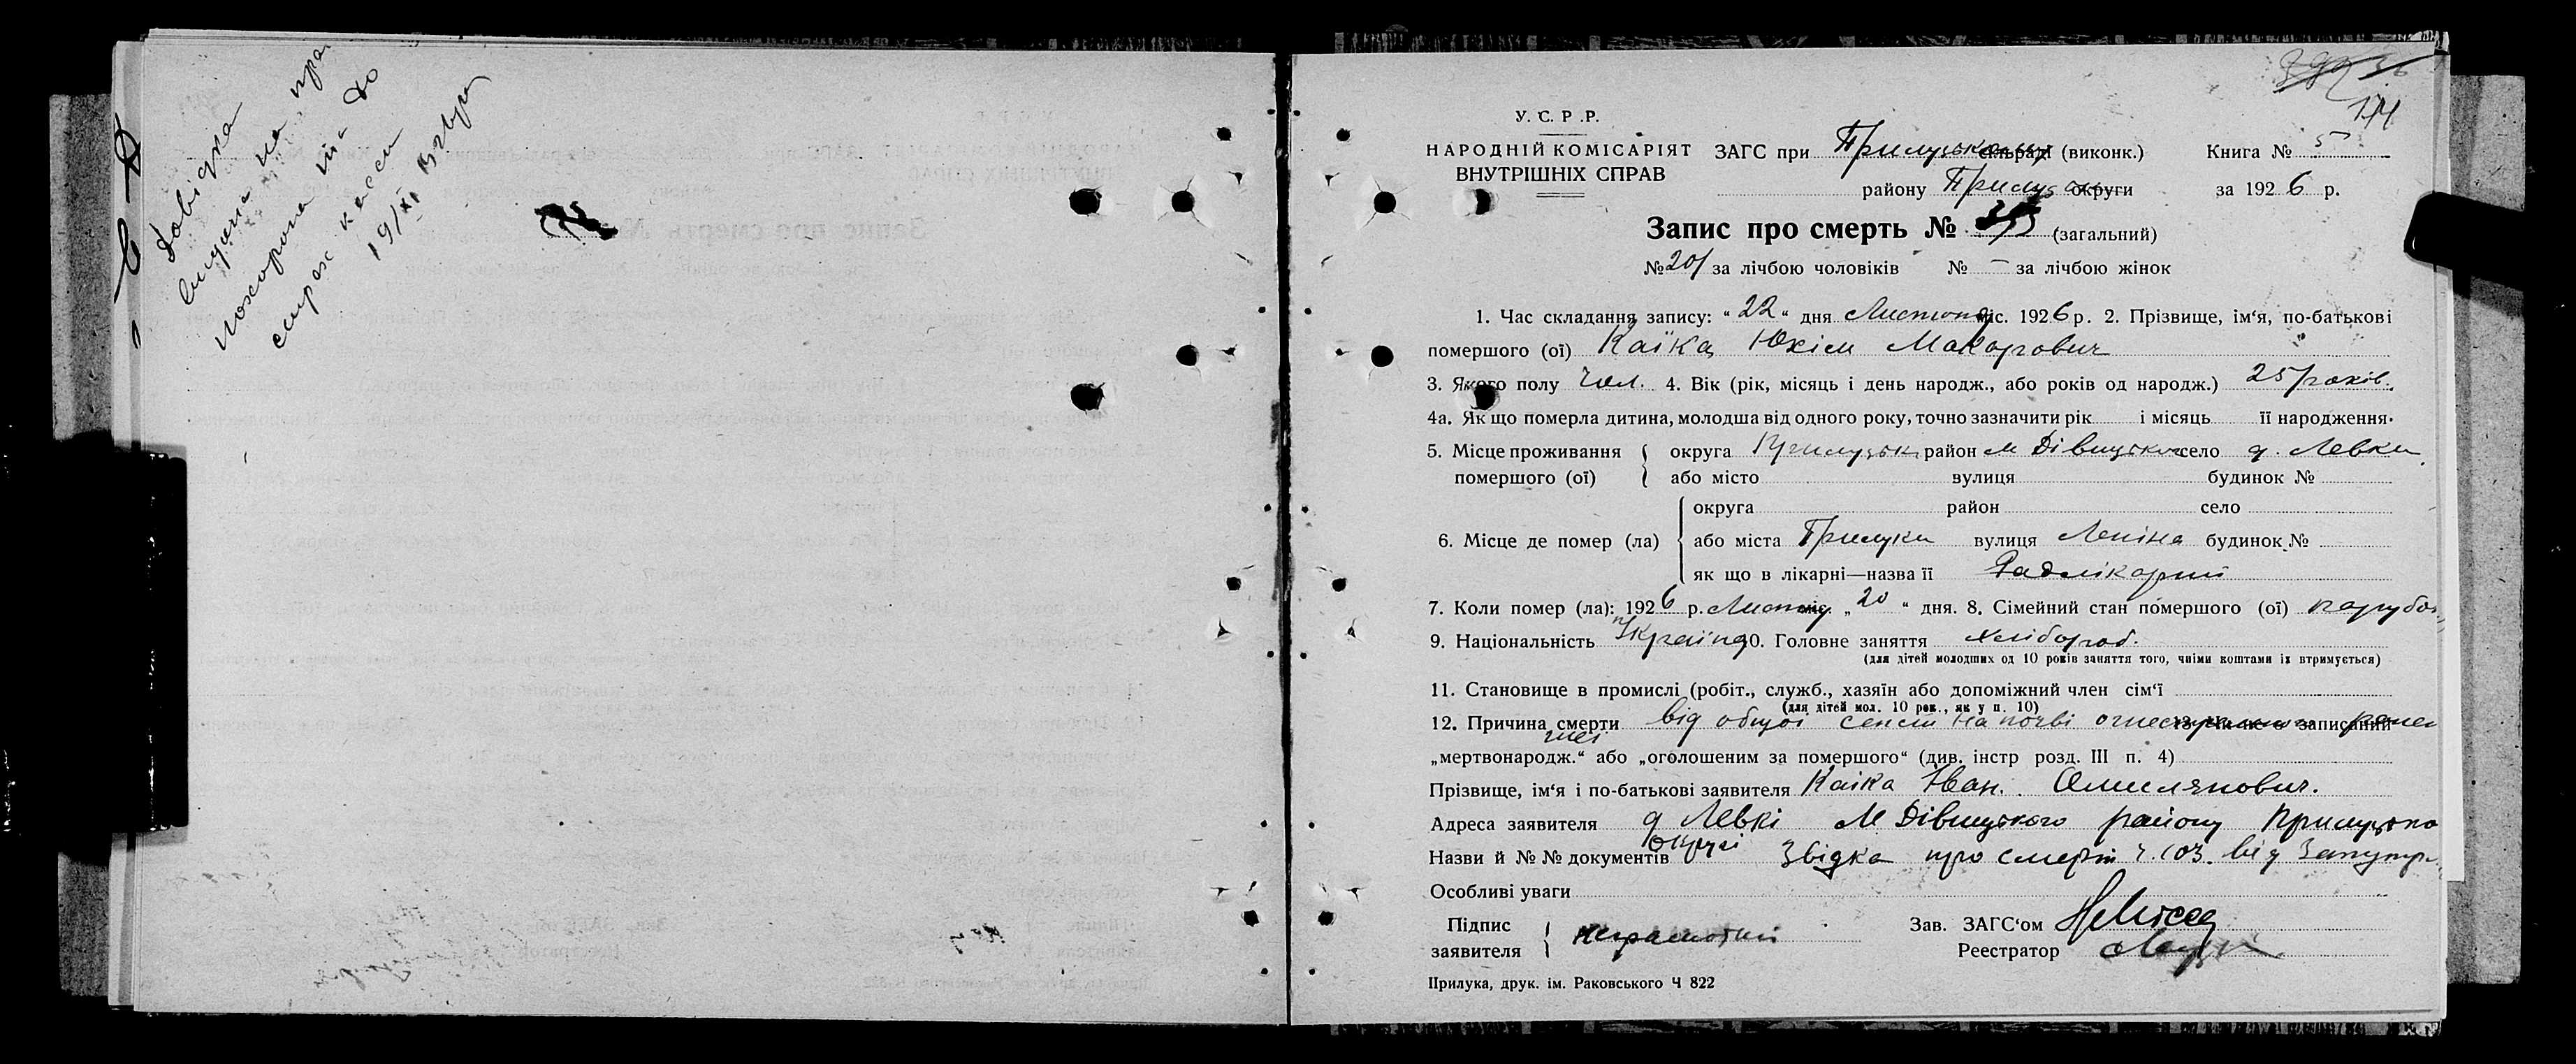 Довідка
видана на пра
похорона та до
страх касси
19/XI
114
У. С. Р. Р.
НАРОДНІЙ КОМІСАРІЯТ
ВНУТРІШНІХ СПРАВ
ЗАГС при Прилуцькому сільраді (виконк.) Книга № 5
району Прилуц округи за 1926 р.
Запис про смерть № (загальний)
№ 201 за лічбою чоловіків № – за лічбою жінок
1. Час складання запису: “ 22 “ дня Листопад міс. 1926 р. 2. Прізвище, ім‘я, по-батькові
помершого (ої) Каїка Юхім Макарович
3. Якого полу чол. 4. Вік (рік, місяць і день народж., або років од народж.) 25 років.
4а. Як що померла дитина, молодша від одного року, точно зазначити рік і місяць її народження.
5. Місце проживання помершого (ої) округа Прилуцьк. район М Дівицьког село д. Левки
або місто вулиця будинок №
6. Місце де помер (ла) округа район село
або міста Прилуки вулиця Леніна будинок №
як що в лікарні—назва її Радлікарні
7. Коли помер (ла): 1926 р. Листоп міс. „ 20 “ дня. 8. Сімейний стан помершого (ої) парубок
9. Національність Україн 10. Головне заняття хлібороб.
(для дітей молодших од 10 років заняття того, чиїми коштами їх втримується)
11. Становище в промислі (робіт., служб., хазяїн або допоміжний член сім‘ї
(для дітей мол. 10 рок., як у п. 10)
12. Причина смерти від общої на почві 13. Чи не є записаний
„мертвонародж.“ або „оголошеним за помершого“ (див. інстр розд. III п. 4)
Прізвище, ім‘я і по-батькові заявителя Каїка Іван Омелянович.
Адреса заявителя д Левкі М Дівицького району Прилуцько
округі
Назви й №№ документів Звідка про смерть ч. 103. від
Особливі уваги
Підпис заявителя неграмотний
Зав. ЗАГС‘ом
Реестратор
Прилука, друк. ім. Раковського Ч 822